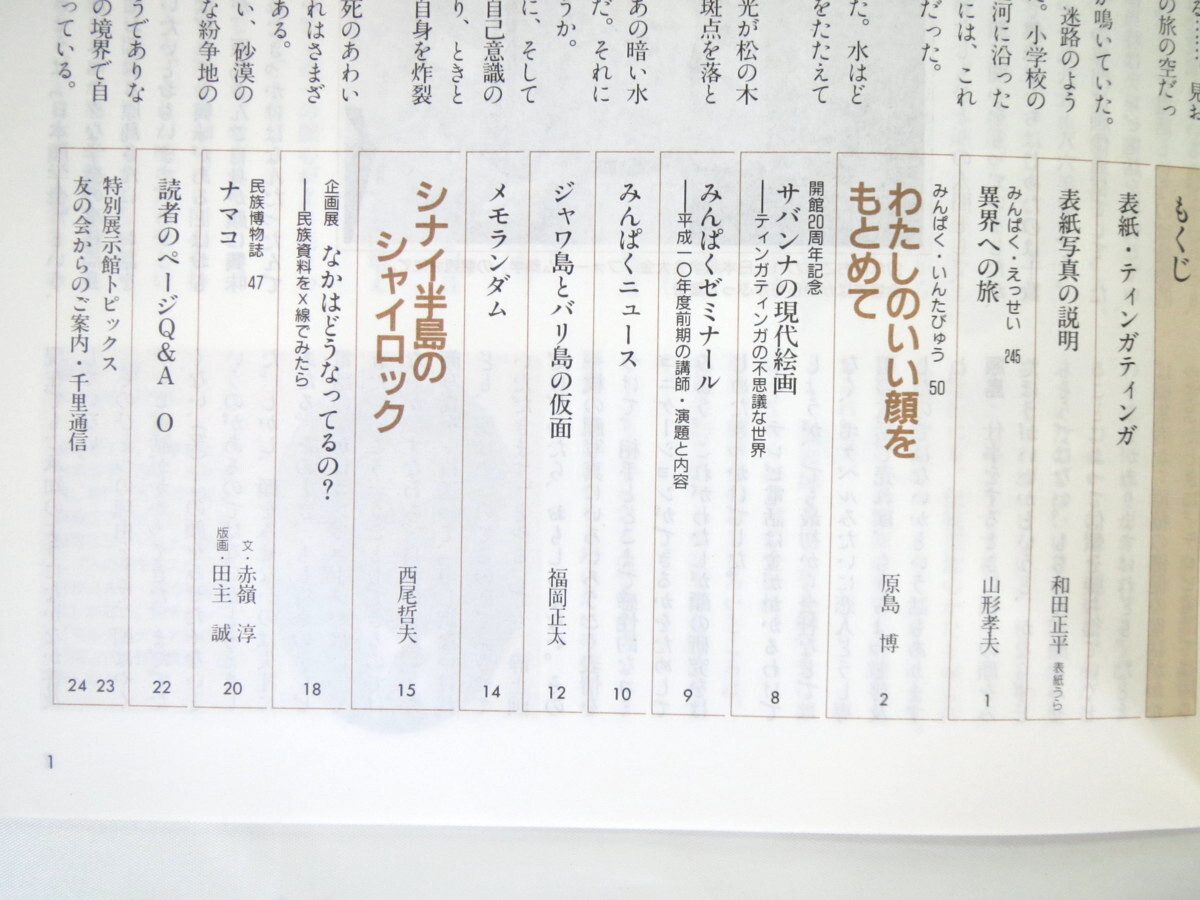 の旅の空だっ
が鳴いていた。
迷路のよう
。小学校の
河に沿った
には、これ
だった。
た。水はど
をたたえて
光が松の木
斑点を落と
あの暗い水
だ。それに
うか。
に、そして
自己意識の
り、ときと
自身を炸裂
死のあわい
れはさまざ
ある。
い、砂漠の
な紛争地の
うでありな
の境界で自
っている。
もくじ
表紙・ティンガティンガ
表紙写真の説明 和田正平 表紙うら
みんぱく・えっせい 245
異界への旅 山形孝夫 1
みんぱく・いんたびゅう 50
わたしのいい顔を
もとめて 原島 博 2
開館20周年記念
サバンナの現代絵画
──ティンガティンガの不思議な世界 8
みんぱくゼミナール
──平成一〇年度前期の講師・演題と内容 9
みんぱくニュース 10
ジャワ島とバリ島の仮面 福岡正太 12
メモランダム 14
シナイ半島の
シャイロック 西尾哲夫 15
企画展 なかはどうなってるの?
──民族資料をX線でみたら 18
民族博物誌 47
ナマコ 文・赤嶺 淳
版画・田主 誠 20
読者のページQ&A O 22
特別展示館トピックス 23
友の会からのご案内・千里通信 24
1